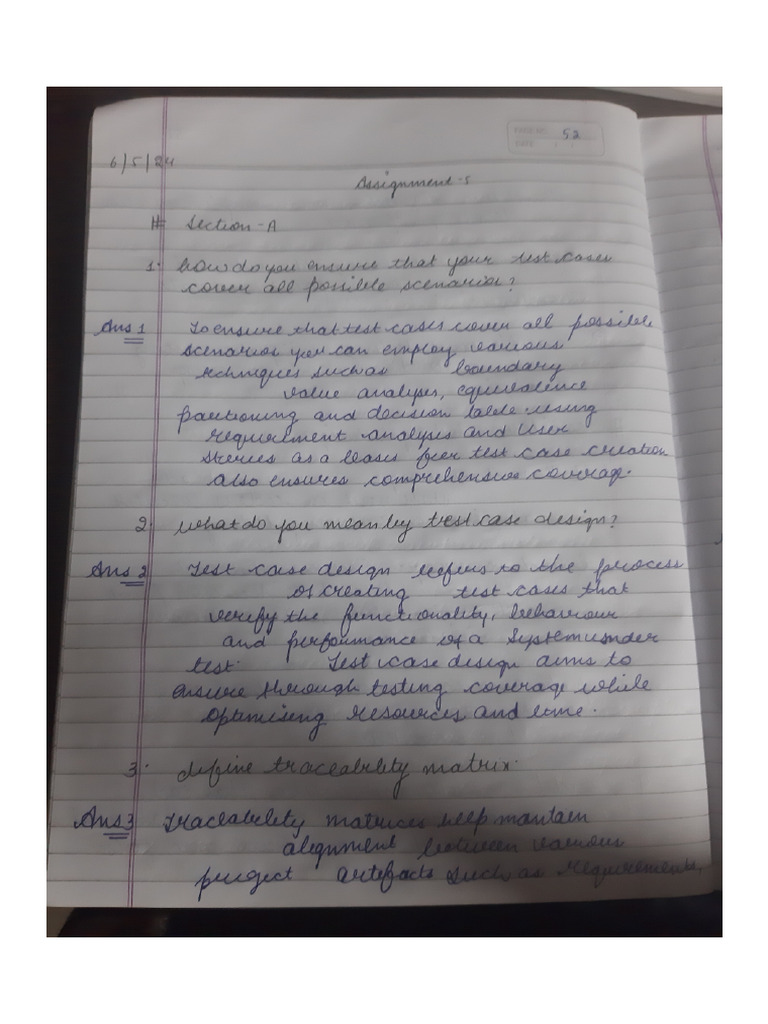 PAGE NO. 52
DATE / /
6/5/24
Assignment-5
# Section-A
1. how do you ensure that your test cases
cover all possible scenarios?
Ans 1 To ensure that test cases cover all possible
scenarios you can employ various
techniques such as boundary
value analyses, equivalence
partioning and decision table using
requirement analysis and User
stories as a bases for test case creation
also ensures comprehensive coverage.
2. what do you mean by test case design?
Ans 2 Test case design refers to the process
of creating test cases that
verify the functionality, behaviour
and performance of a System under
test. Test case design aims to
ensure through testing coverage while
optimising resources and time.
3. define traceability matrix.
Ans 3 Traceability matrices help mantain
alignment between various
project artefacts such as requirements,